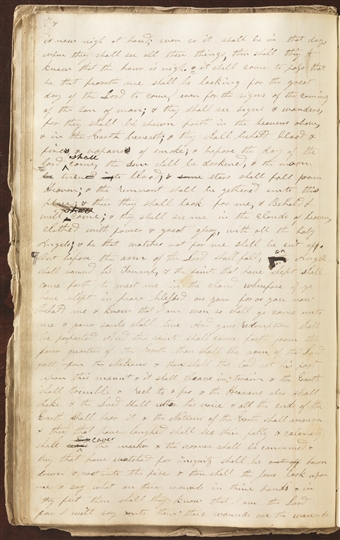 is now nigh at hand; even so it shall be in that day
when they shall see all these things, then shall they
know that the hour is nigh & it shall come to pass that
he that feareth me shall be looking for the great
day of the Lord to come, even for the signs of the coming
of the son of man; & they shall see signs & wonders,
for they shall be shown forth in the heavens above,
& in the Earth beneath; & they shall behold blood &
fire & vapours of smoke; & before the day of the
Lord shall come, the Sun shall be darkened, & the moon
be turned into blood, & some stars shall fall from
Heaven; & the remnant shall be gathered unto this
place; & then they shall look for me, & Behold I
will come; & they shall see me in the clouds of heaven,
clothed with power & great glory, with all the holy
Angels; & he that watches not for me shall be cut off
But before the arm of the Lord shall fall, an Angel
shall sound his Trumpet, & the saints that have slept shall
come forth to meet me in the cloud wherefore if ye
have slept in peace blessed are you for as you now
behold me & know that I am even so shall ye come unto
me & your souls shall live & your redemption shall
be perfected & the saints shall come forth from the
four quarters of the Earth then shall the arm of the Lord
fall upon the Nations & then shall the Lord set his foot
upon this mount & it shall cleave in twain & the Earth
shall tremble & reel to & fro & the Heavens also shall
shake & the Lord shall utter his voice & all the ends of the
Earth shall hear it & the Nations of the Earth shall mourn
& they that have laughed shall see their folly & calamity
shall cover the mocker & the scorner shall be consumed &
they that have watched for iniquity shall be hewn
down & cast into the fire & then shall the Jews look upon
me & say what are these wounds in thine hands & in
thy feet then shall they know that I am the Lord
for I will say unto them these wounds are the wounds